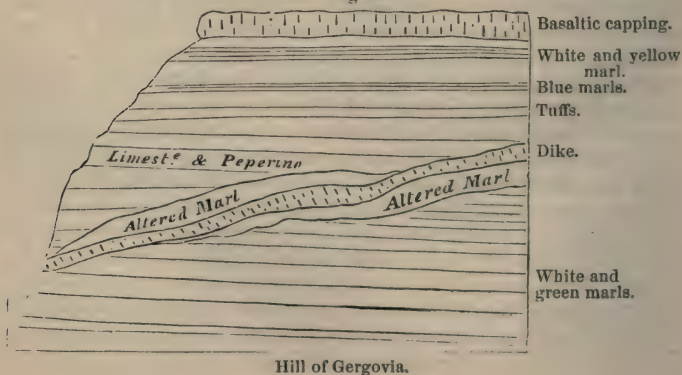 Basaltic capping.
White and yellow
marl.
Blue marls.
Tuffs.
Limest.e & Peperino
Dike.
Altered Marl
Altered Marl
White and
green marls.
Hill of Gergovia.